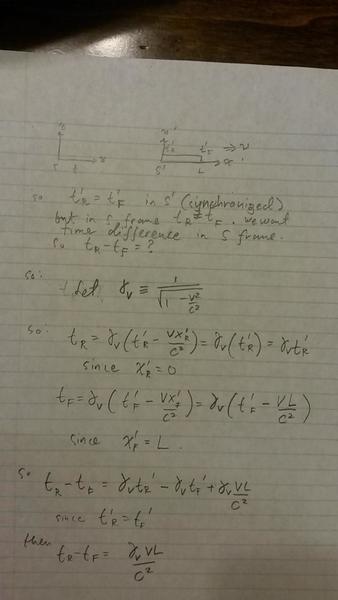 z z'
t'R t'F ⇒ v
S t x S' L x'
so t'R = t'F in S' (synchronized)
but in S frame tR ≠ tF. we want
time difference in S frame.
so tR - tF = ?
so:
Let γv ≡ 1/√(1 - v²/c²)
so: tR = γv(t'R - vx'R/c²) = γv(t'R) = γv t'R
since x'R = 0
tF = γv(t'F - vx'F/c²) = γv(t'F - vL/c²)
since x'F = L.
so tR - tF = γv tR' - γv tF' + γv vL/c²
since t'R = tF'
then tR - tF = γv vL/c²